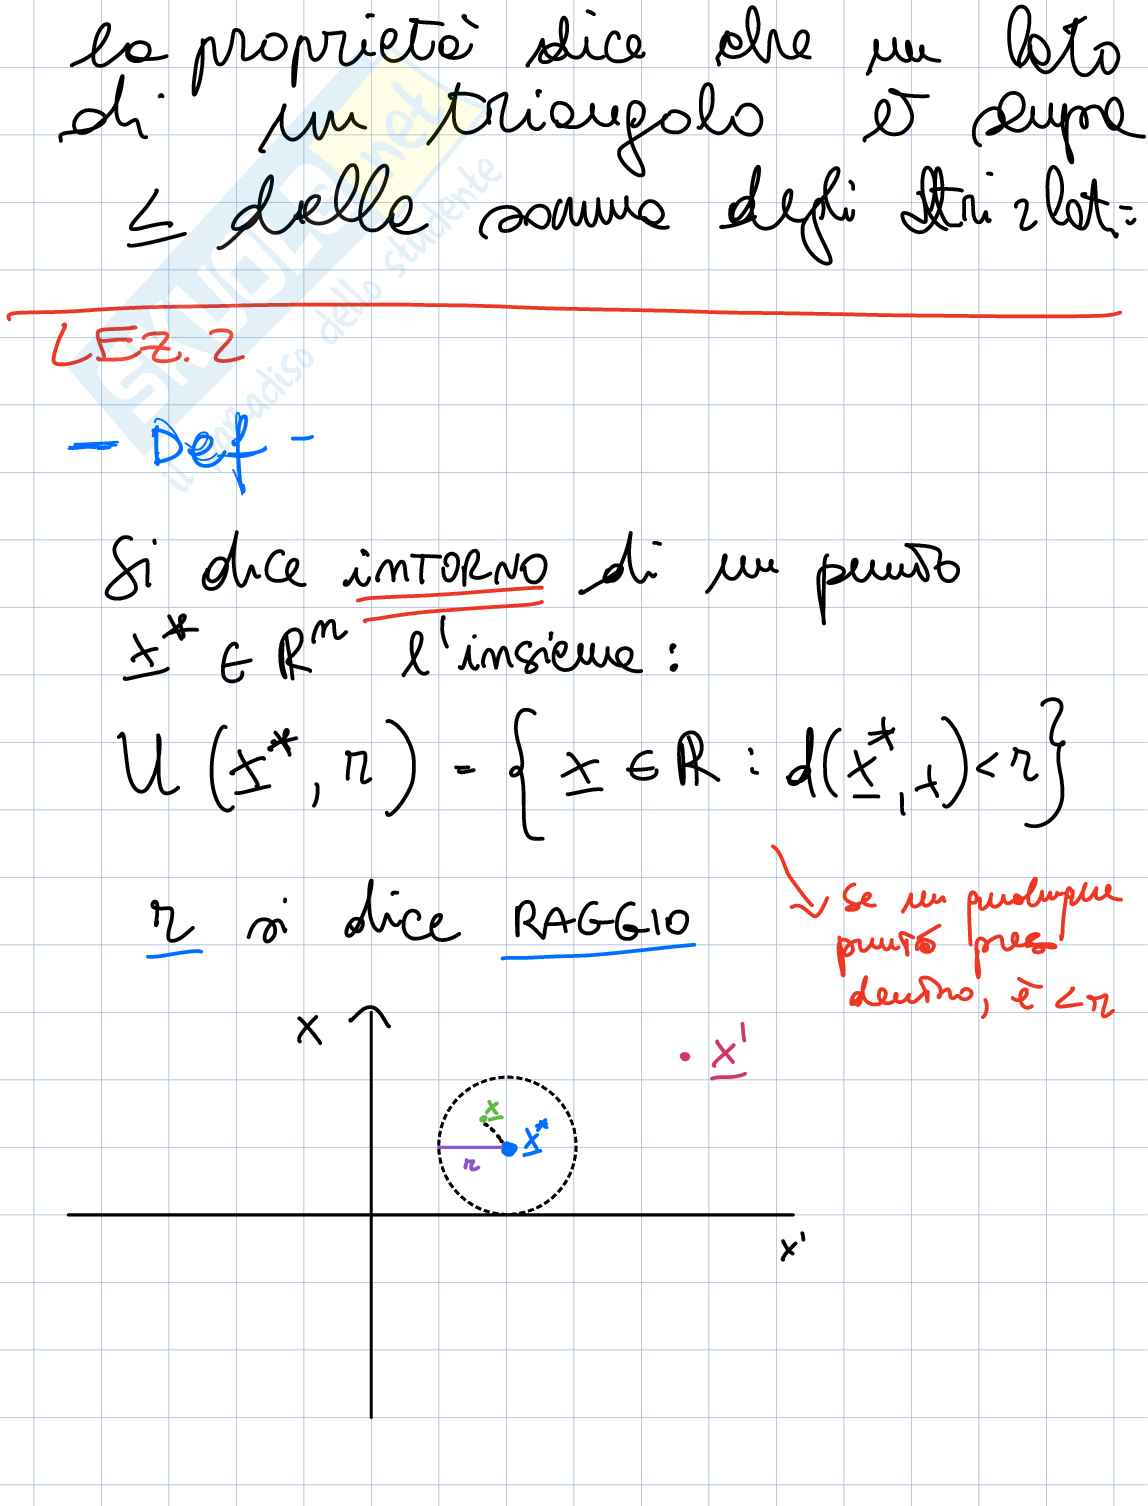 la proprietà dice che un lato
di un triangolo è sempre
≤ della somma degli altri 2 lati
LEZ. 2
- Def -
Si dice INTORNO di un punto
x* ∈ R^n l'insieme:
U (x*, r) = { x ∈ R : d(x*, x) < r }
r si dice RAGGIO
Se un qualunque
punto preso
dentro, è < r
x
x'
x
x*
r
x'
SKUOLA.net
il paradiso dello studente